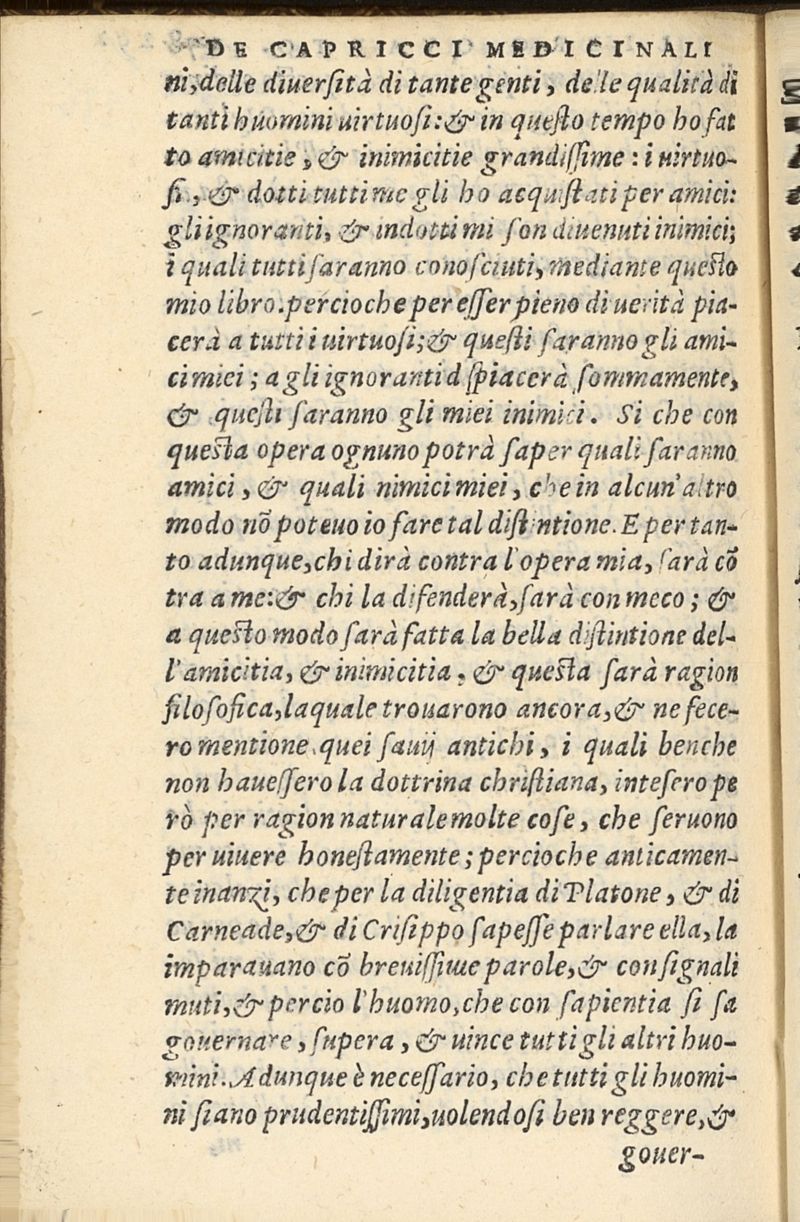 DE CAPRICCI MEDICINALI
ni, delle diuerſità di tante genti, delle qualità di
tanti huomini uirtuoſi: & in queſto tempo ho fat
to amicitie, & inimicitie grandiſſime: i uirtuo-
ſi, & dotti tutti me gli ho acquiſtati per amici:
gli ignoranti, & indotti mi ſon diuenuti inimici;
i quali tutti ſaranno conoſciuti, mediante queſto
mio libro. percioche per eſſer pieno di uerità pia-
cerà a tutti i uirtuoſi; & queſti ſaranno gli ami-
ci miei; a gli ignoranti diſpiacerà ſommamente,
& queſti ſaranno gli miei inimici. Si che con
queſta opera ognuno potrà ſaper quali ſaranno
amici, & quali nimici miei, che in alcun' altro
modo nõ poteuo io fare tal diſtintione. E per tan-
to adunque, chi dirà contra l'opera mia, ſarà cõ
tra a me: & chi la difenderà, ſarà con meco; &
a queſto modo ſarà fatta la bella diſtintione del-
l'amicitia, & inimicitia, & queſta ſarà ragion
filoſofica, laquale trouarono ancora, & ne fece-
ro mentione quei ſauij antichi, i quali benche
non haueſſero la dottrina chriſtiana, inteſero pe
rò per ragion naturale molte coſe, che ſeruono
per uiuere honeſtamente; percioche anticamen-
te inanzi, che per la diligentia di Platone, & di
Carneade, & di Criſippo ſapeſſe parlare ella, la
imparauano cõ breuiſſime parole, & con ſignali
muti, & percio l'huomo, che con ſapientia ſi ſa
gouernare, ſupera, & uince tutti gli altri huo-
mini. Adunque è neceſſario, che tutti gli huomi-
ni ſiano prudentiſſimi, uolendoſi ben reggere, &
gouer-